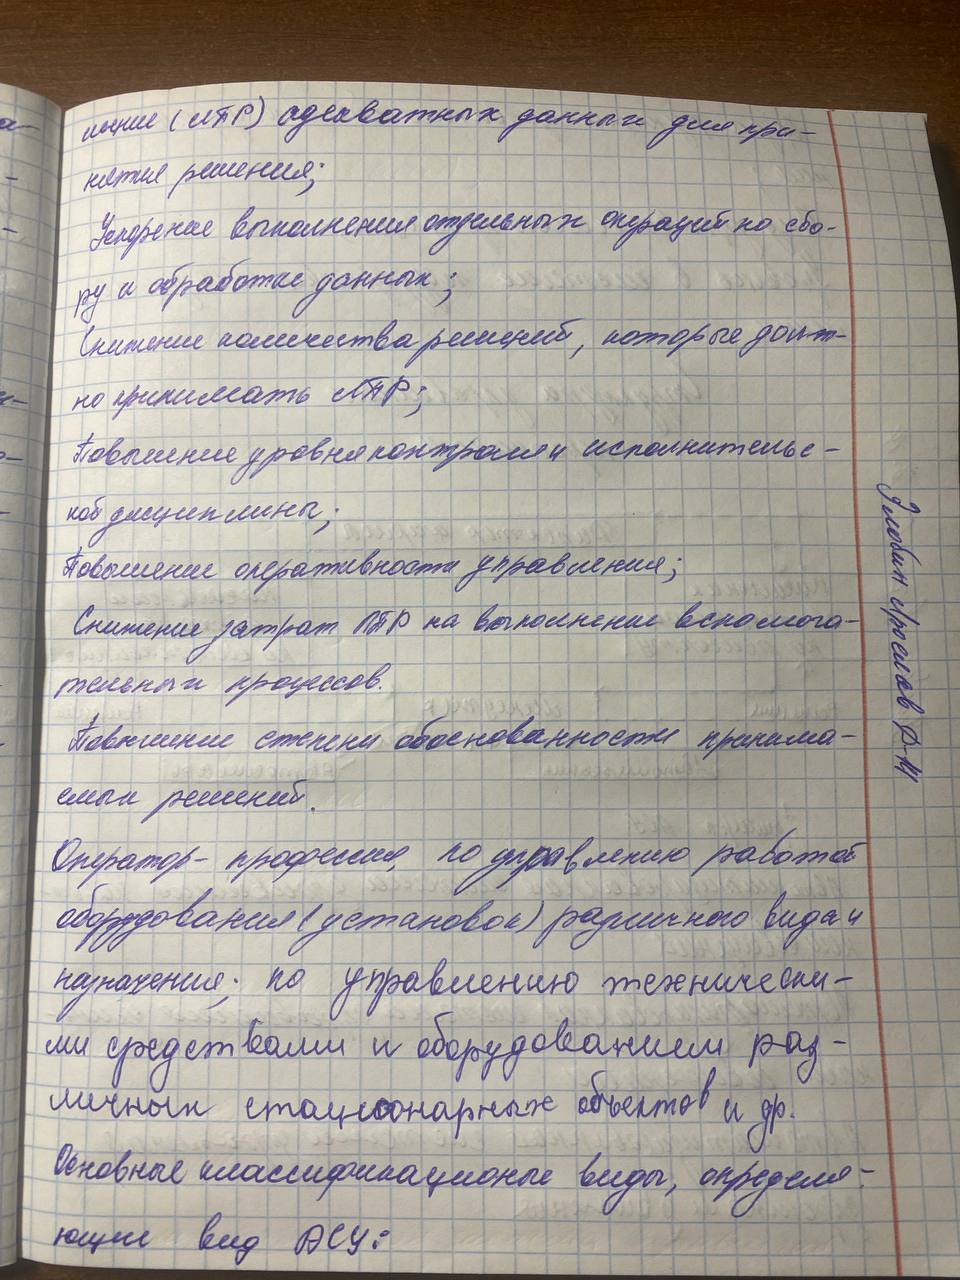 шение (ЛПР) адекватных данных для при-
нятия решения;
Ускорение выполнения отдельных операций по сбо-
ру и обработке данных;
Снижение количества решений, которые долж-
но принимать ЛПР;
Повышение уровня контроля и исполнительс-
кой дисциплины;
Повышение оперативности управления;
Снижение затрат ЛПР на выполнение вспомога-
тельных процессов.
Повышение степени обоснованности принима-
емых решений.
Оператор - профессия, по управлению работой
оборудования (установок) различного вида и
назначения; по управлению технически-
ми средствами и оборудованием раз-
личных стационарных объектов и др.
Основные классификационые виды, определя-
ющие вид АСУ:
Злобин Ярослав